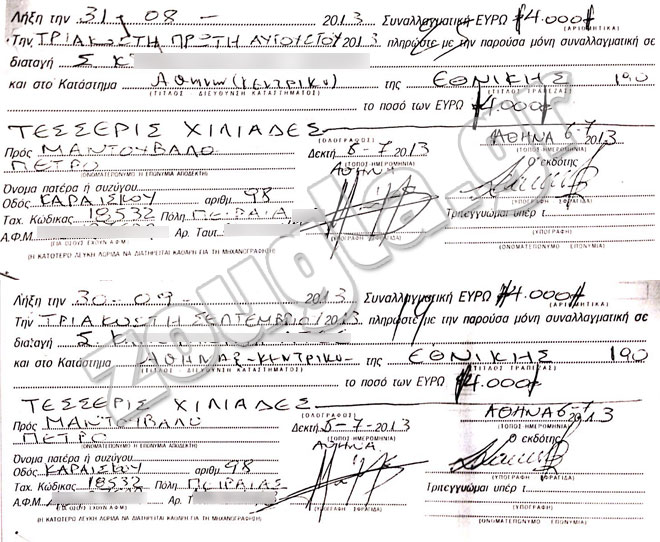 Λήξη την 31 - 08 - 2013 Συναλλαγματική ΕΥΡΩ #4.000#
(ΑΡΙΘΜΗΤΙΚΑ)
Την ΤΡΙΑΚΟΣΤΗ ΠΡΩΤΗ ΑΥΓΟΥΣΤΟΥ 2013 πληρώστε με την παρούσα μόνη συναλλαγματική σε
διαταγή Σ Κ
και στο Κατάστημα Αθηνών (ΚΕΝΤΡΙΚΟ) της ΕΘΝΙΚΗΣ 190
(ΤΙΤΛΟΣ ΔΙΕΥΘΥΝΣΗ ΚΑΤΑΣΤΗΜΑΤΟΣ) (ΤΙΤΛΟΣ ΤΡΑΠΕΖΑΣ)
το ποσό των ΕΥΡΩ #4.000#
ΤΕΣΣΕΡΙΣ ΧΙΛΙΑΔΕΣ
(ΟΛΟΓΡΑΦΩΣ)
Προς ΜΑΝΤΟΥΒΑΛΟ Δεκτή 6-7-2013 ΑΘΗΝΑ 6-7-2013
ΠΕΤΡΟ (ΤΟΠΟΣ ΗΜΕΡΟΜΗΝΙΑ) (ΤΟΠΟΣ ΗΜΕΡΟΜΗΝΙΑ)
(ΟΝΟΜΑΤΕΠΩΝΥΜΟ Ή ΕΠΩΝΥΜΙΑ ΑΠΟΔΕΚΤΗ) ΑΘΗΝΑ Ο εκδότης
Όνομα πατέρα ή συζύγου
Οδός ΚΑΡΑΙΣΚΟΥ αριθμ 98
Ταχ. Κώδικας 18532 Πόλη ΠΕΙΡΑΙΑ (ΥΠΟΓΡΑΦΗ ΣΦΡΑΓΙΔΑ)
Τριτεγγυώμαι υπέρ τ
Α.Φ.Μ. Αρ. Ταυτ.
(ΓΙΑ ΟΣΟΥΣ ΕΧΟΥΝ Α.Φ.Μ.) (ΥΠΟΓΡΑΦΗ ΣΦΡΑΓΙΔΑ) (ΥΠΟΓΡΑΦΗ)
(Η ΚΑΤΩΤΕΡΩ ΛΕΥΚΗ ΛΩΡΙΔΑ ΝΑ ΔΙΑΤΗΡΕΙΤΑΙ ΚΑΘΑΡΗ ΓΙΑ ΤΗ ΜΗΧΑΝΟΓΡΑΦΗΣΗ) (ΟΝΟΜΑΤΕΠΩΝΥΜΟ ΕΠΩΝΥΜΙΑ)
zougla.gr
Λήξη την 30-09- 2013 Συναλλαγματική ΕΥΡΩ #4.000#
(ΑΡΙΘΜΗΤΙΚΑ)
Την ΤΡΙΑΚΟΣΤΗ ΣΕΠΤΕΜΒΡΙΟΥ 2013 πληρώστε με την παρούσα μόνη συναλλαγματική σε
διαταγή Σ Κ
και στο Κατάστημα ΑΘΗΝΑΣ-ΚΕΝΤΡΙΚΟ- της ΕΘΝΙΚΗΣ 190
(ΤΙΤΛΟΣ ΔΙΕΥΘΥΝΣΗ ΚΑΤΑΣΤΗΜΑΤΟΣ) (ΤΙΤΛΟΣ ΤΡΑΠΕΖΑΣ)
το ποσό των ΕΥΡΩ #4.000#
ΤΕΣΣΕΡΙΣ ΧΙΛΙΑΔΕΣ
(ΟΛΟΓΡΑΦΩΣ)
Προς ΜΑΝΤΟΥΒΑΛΟ Δεκτή 6-7-2013 ΑΘΗΝΑ 6-7-2013
ΠΕΤΡΟ (ΤΟΠΟΣ ΗΜΕΡΟΜΗΝΙΑ) (ΤΟΠΟΣ ΗΜΕΡΟΜΗΝΙΑ)
(ΟΝΟΜΑΤΕΠΩΝΥΜΟ Ή ΕΠΩΝΥΜΙΑ ΑΠΟΔΕΚΤΗ) ΑΘΗΝΑ Ο εκδότης
Όνομα πατέρα ή συζύγου
Οδός ΚΑΡΑΙΣΚΟΥ αριθμ 98
Ταχ. Κώδικας 18532 Πόλη ΠΕΙΡΑΙΑΣ (ΥΠΟΓΡΑΦΗ ΣΦΡΑΓΙΔΑ)
Α.Φ.Μ. Αρ. Τ Τριτεγγυώμαι υπέρ τ
(ΓΙΑ ΟΣΟΥΣ ΕΧΟΥΝ Α.Φ.Μ.) (ΥΠΟΓΡΑΦΗ ΣΦΡΑΓΙΔΑ) (ΥΠΟΓΡΑΦΗ)
(Η ΚΑΤΩΤΕΡΩ ΛΕΥΚΗ ΛΩΡΙΔΑ ΝΑ ΔΙΑΤΗΡΕΙΤΑΙ ΚΑΘΑΡΗ ΓΙΑ ΤΗ ΜΗΧΑΝΟΓΡΑΦΗΣΗ) (ΟΝΟΜΑΤΕΠΩΝΥΜΟ ΕΠΩΝΥΜΙΑ)